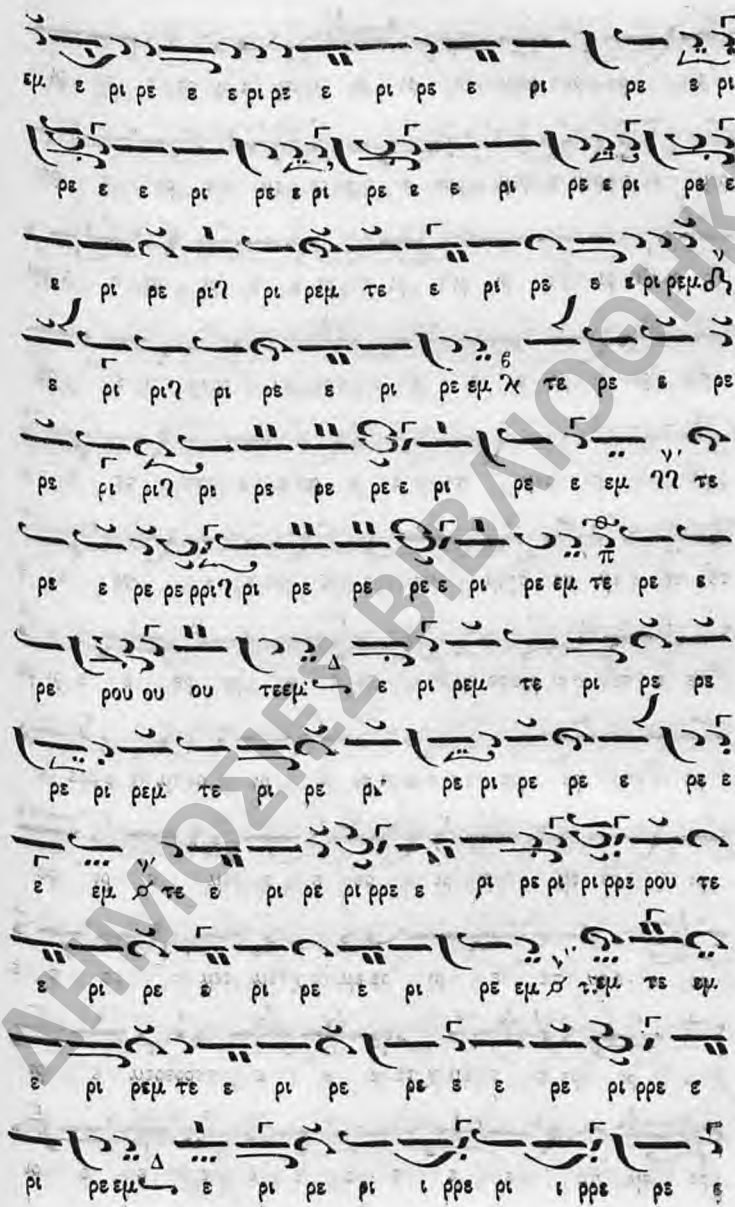 εμ ε ρι ρε ε ε ρι ρε ε ρι ρε ε ρι ρε ε ρι
ρε ε ε ρι ρε ε ρι ρε ε ε ρι ρε ε ρι ρε ε
ε ρι ρε ρι ρι ρεμ τε ε ρι ρε ε ε ρι ρεμ
ε ρι ρι ρι ρε ε ρι ρε εμ τε ρε ε ρε
ρε ρι ρι ρι ρε ρε ρε ε ρι ρε ε εμ τε
ρε ε ρε ρε ρρι ρι ρε ρε ρε ε ρι ρε εμ τε ρε ε
ρε ρου ου ου τεεμ Δ ε ρι ρεμ τε ρι ρε ρε
ρε ρι ρεμ τε ρι ρε ρε ρι ρε ρε ε ρε ε
ε εμ τε ε ρι ρε ρι ρρε ε ρι ρε ρι ρι ρρε ρου τε
ε ρι ρε ε ρι ρε ε ρι ρε εμ τεμ τε εμ
ε ρι ρεμ τε ε ρι ρε ρε ε ε ρε ρι ρρε ε
ρι ρε εμ Δ ε ρι ρε ρι ι ρρε ρι ι ρρε ρε ε
ΔΗΜΟΣΙΕΣ ΒΙΒΛΙΟΘΗΚ